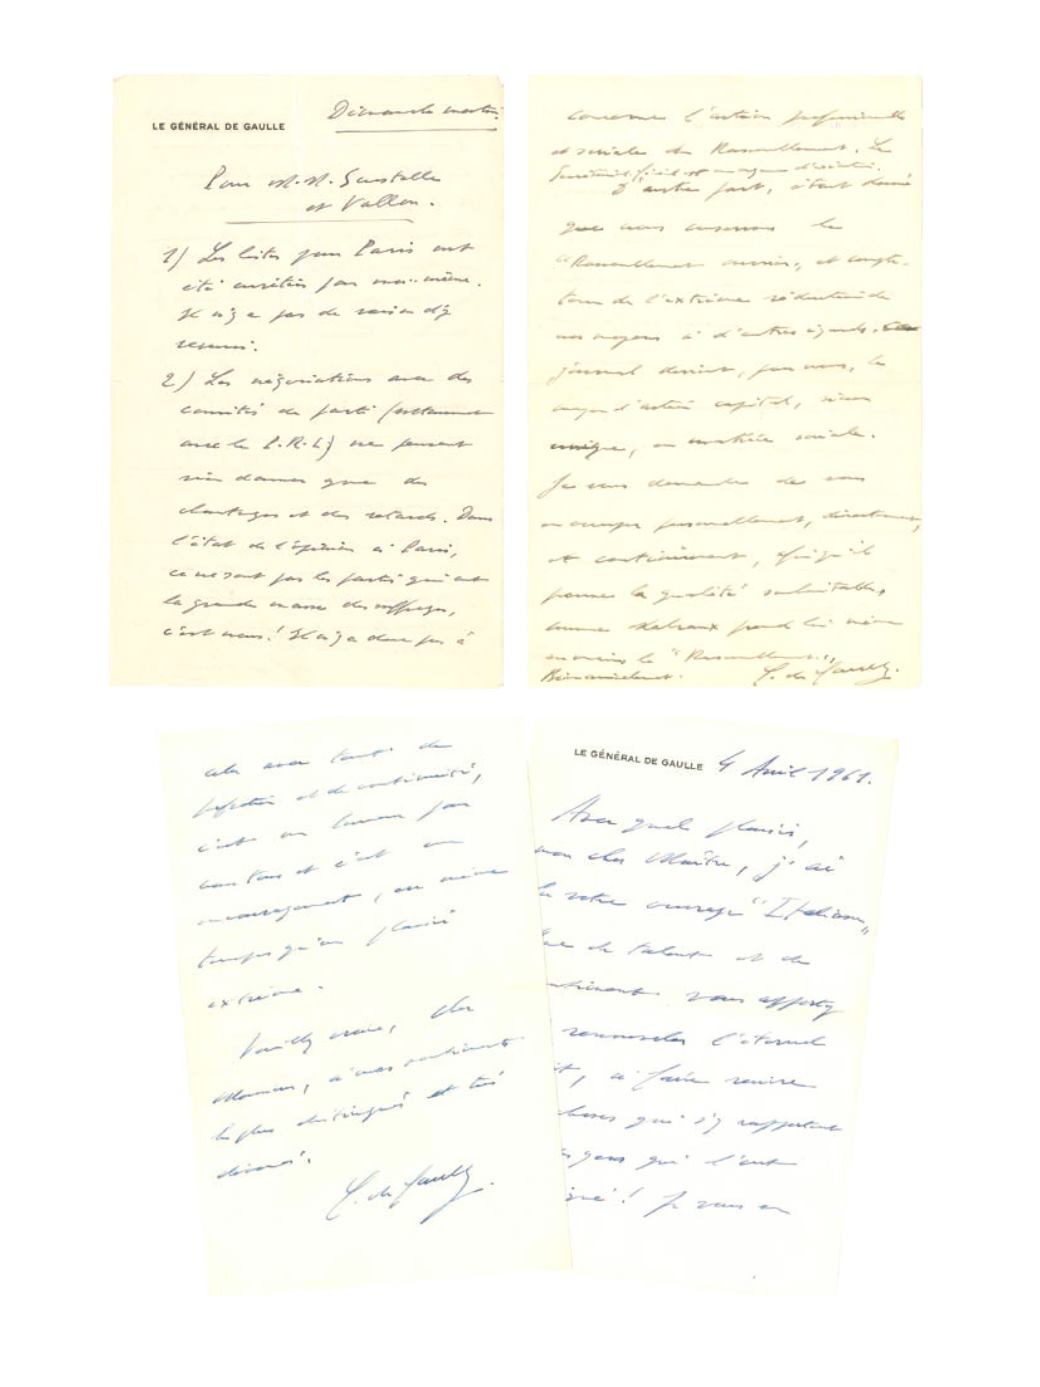 LE GÉNÉRAL DE GAULLE
Dimanche matin
Pour M.M. Soustelle
et Vallon.
1) Les listes pour Paris ont
été arrêtées par moi-même.
Il n'y a pas de raison d'y
revenir.
2) Les négociations avec des
comités de parti (notamment
avec le P.R.L) ne peuvent
rien donner que des
chantages et des retards. Dans
l'état de l'opinion à Paris,
ce ne sont pas les partis qui ont
la grande masse des suffrages,
c'est nous! Il n'y a donc pas à
concerne l'action professionnelle
et sociale du Rassemblement. Le
D'autre part, étant donné
que nous
"Rassemblement ouvrier", et compte-
tenu de l'extrême réduction de
nos moyens à d'autres égards,
journal devient, pour nous, le
moyen d'action capital, sinon
unique, en matière sociale.
Je vous demande de vous
en occuper personnellement, directement,
et continûment, afin qu'il
prenne la qualité souhaitable,
comme Malraux prend lui-même
en mains le "Rassemblement".
Bien amicalement. C. de Gaulle.
cela avec tant de
perfection et de continuité,
c'est un honneur pour
vous tous et c'est un
encouragement, en même
temps qu'un plaisir
extrême.
Veuillez croire, cher
à mes sentiments
les plus distingués et très
dévoués.
C. de Gaulle.
LE GÉNÉRAL DE GAULLE
4 Avril 1961.
Avec quel plaisir,
mon cher Maître, j'ai
lu votre ouvrage
de talent et de
sentiment vous apportez
renouveler l'éternel
à faire revivre
choses qui s'y rapportent
gens qui l'ont
! Je vous en